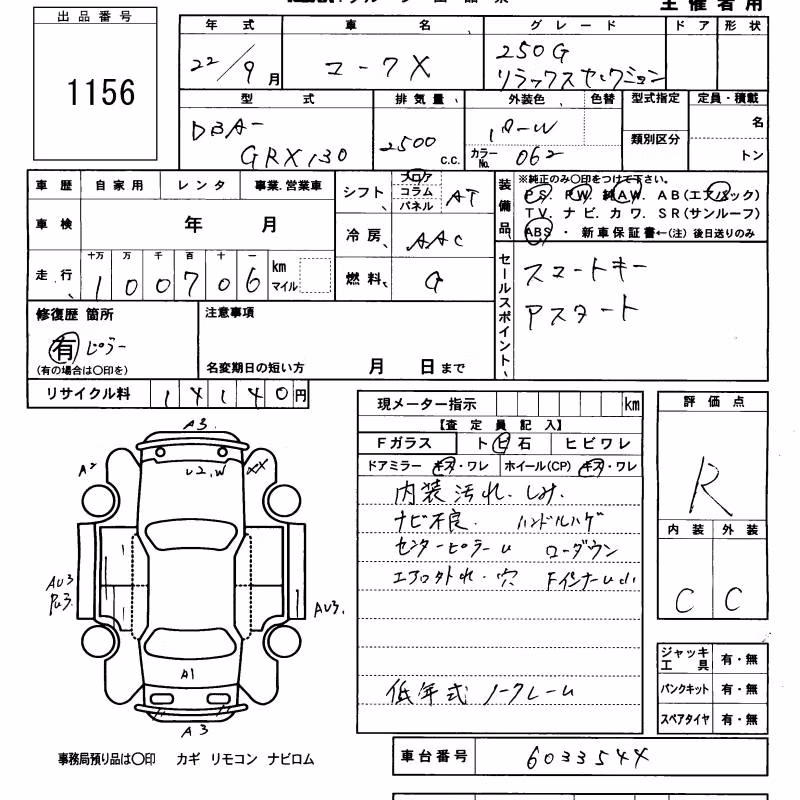 主催者用
出品番号
1156
年式 車名 グレード ドア 形状
22/9月 マークX 250G
リラックスセレクション
型式 排気量 外装色 色替 型式指定 定員・積載
DBA-
GRX130 2500 c.c. パールW
カラーNo. 062 類別区分 名
トン
車歴 自家用 レンタ 事業.営業車
車検 年 月
走行 十万 万 千 百 十 一
100706 km マイル
シフト フロア コラム パネル AT
冷房 AAC
燃料 G
装備品
※純正のみ〇印をつけて下さい。
PS. PW. 純AW. AB(エアバック)
TV. ナビ. カワ. SR(サンルーフ)
ABS ・ 新車保証書←(注) 後日送りのみ
セールスポイント
スマートキー
Pスタート
修復歴 箇所
有 ピラー
(有の場合は〇印を)
注意事項
名変期日の短い方 月 日まで
リサイクル料 14140円
現メーター指示 km
【査定員記入】
Fガラス トビ石 ヒビワレ
ドアミラー キズ・ワレ ホイール(CP) キズ・ワレ
内装汚れ.しみ.
ナビ不良. ハンドルハゲ
センターピラーU ローダウン
エアロ外れ・穴 FインナーU
低年式 ノークレーム
評価点
R
内装 外装
C C
ジャッキ工具 有・無
パンクキット 有・無
スペアタイヤ 有・無
A3
A2 U2.W XX
AU3
PU3. AU3.
A1
A3
事務局預り品は〇印 カギ リモコン ナビロム
車台番号 6033544